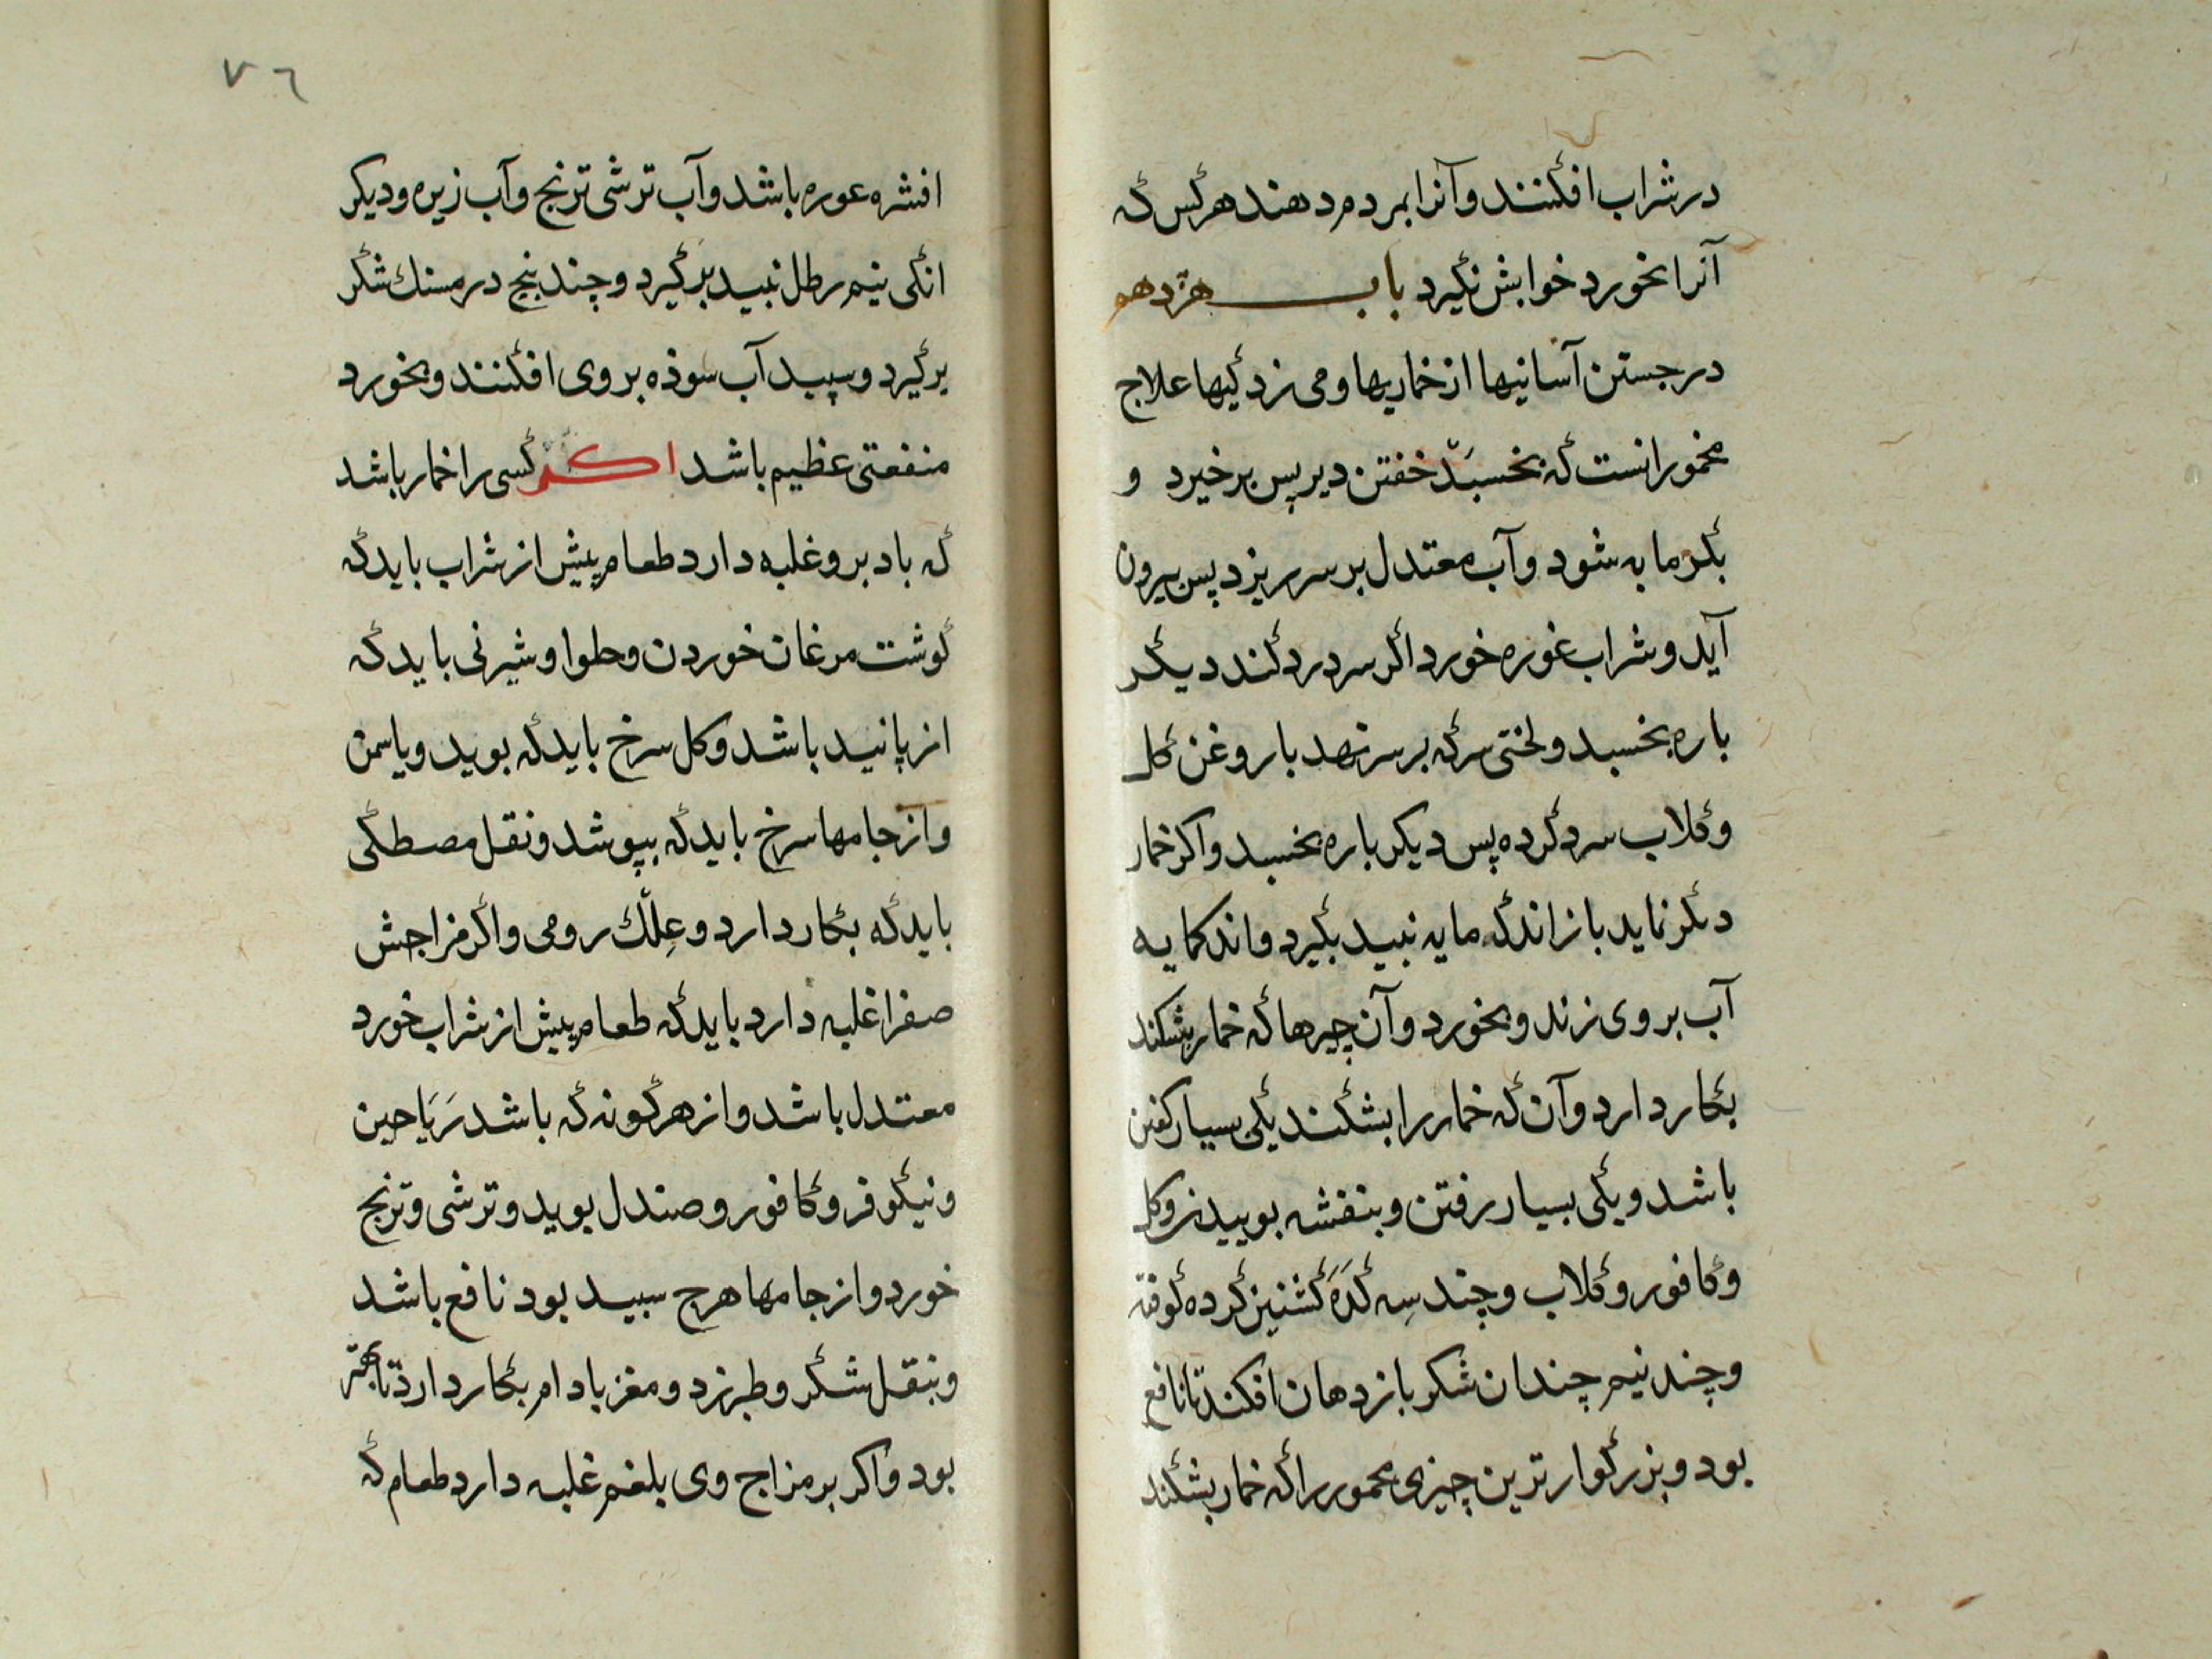 در شراب افکنند و آنرا بمردم دهند هر کس که
آنرا بخورد خوابش نگیرد باب هژدهم
در جستن آسانیها از خماریها و می زدگیها علاج
مخمور انست که بخسبد خفتن دیر پس برخیزد و
بگرمابه شود و آب معتدل بر سر ریزد پس بیرون
آید و شراب غوره خورد اگر سر درد کند دیگر
باره بخسبد و لختی سرکه بر سر نهد با روغن گل
و گلاب سرد کرده پس دیکر باره بخسبد واکر خمار
دگر نماید باز اندکه مایه نبید بگیرد و اندکمایه
آب بر وی زند و بخورد و آن چیزها که خمار بشکند
بکار دارد و آن که خمار را بشکند یکی بسیار کفتن
باشد و یکی بسیار رفتن و بنفشه بوییدن و کل
و کافور و گلاب و چند سِه کَدَه کشنیز کرده کوفته
و چند نیم چندان شکر باز دهان افکند تا نافع
بود و بزرگوار ترین چیزی مخمور را که خمار بشکند
٧٦
افشره عوره باشد و آب ترشی ترنج و آب زیره و دیکر
انکی نیم رطل نبید برگیرد و چند پنج درمسنك شکر
برگیرد و سپید آب سوذه بر وی افکنند و بخورد
منفعتی عظیم باشد اکر کسی را خمار باشد
که باد برو غلبه دارد طعام پیش از شراب باید که
گوشت مرغان خوردن و حلوا و شیرنی باید که
از پانید باشد و کل سرخ باید که بوید و یاسمن
و از جامها سرخ باید که بپوشد و نقل مصطکی
باید که بکار دارد و عِلّك رومی و اگر مزاجش
صفرا غلبه دارد باید که طعام پیش از شراب خورد
معتدل باشد و از هر گونه که باشد رَیَاحین
و نیکوفر و کافور و صندل بوید و ترشی و ترنج
خورد و از جامها هرچ سبید بود نافع باشد
و بنقل شکر و طبرزد و مغز بادام بکار دارذ تا بهتر
بود واکر بر مزاج وی بلغم غلبه دارد طعام که